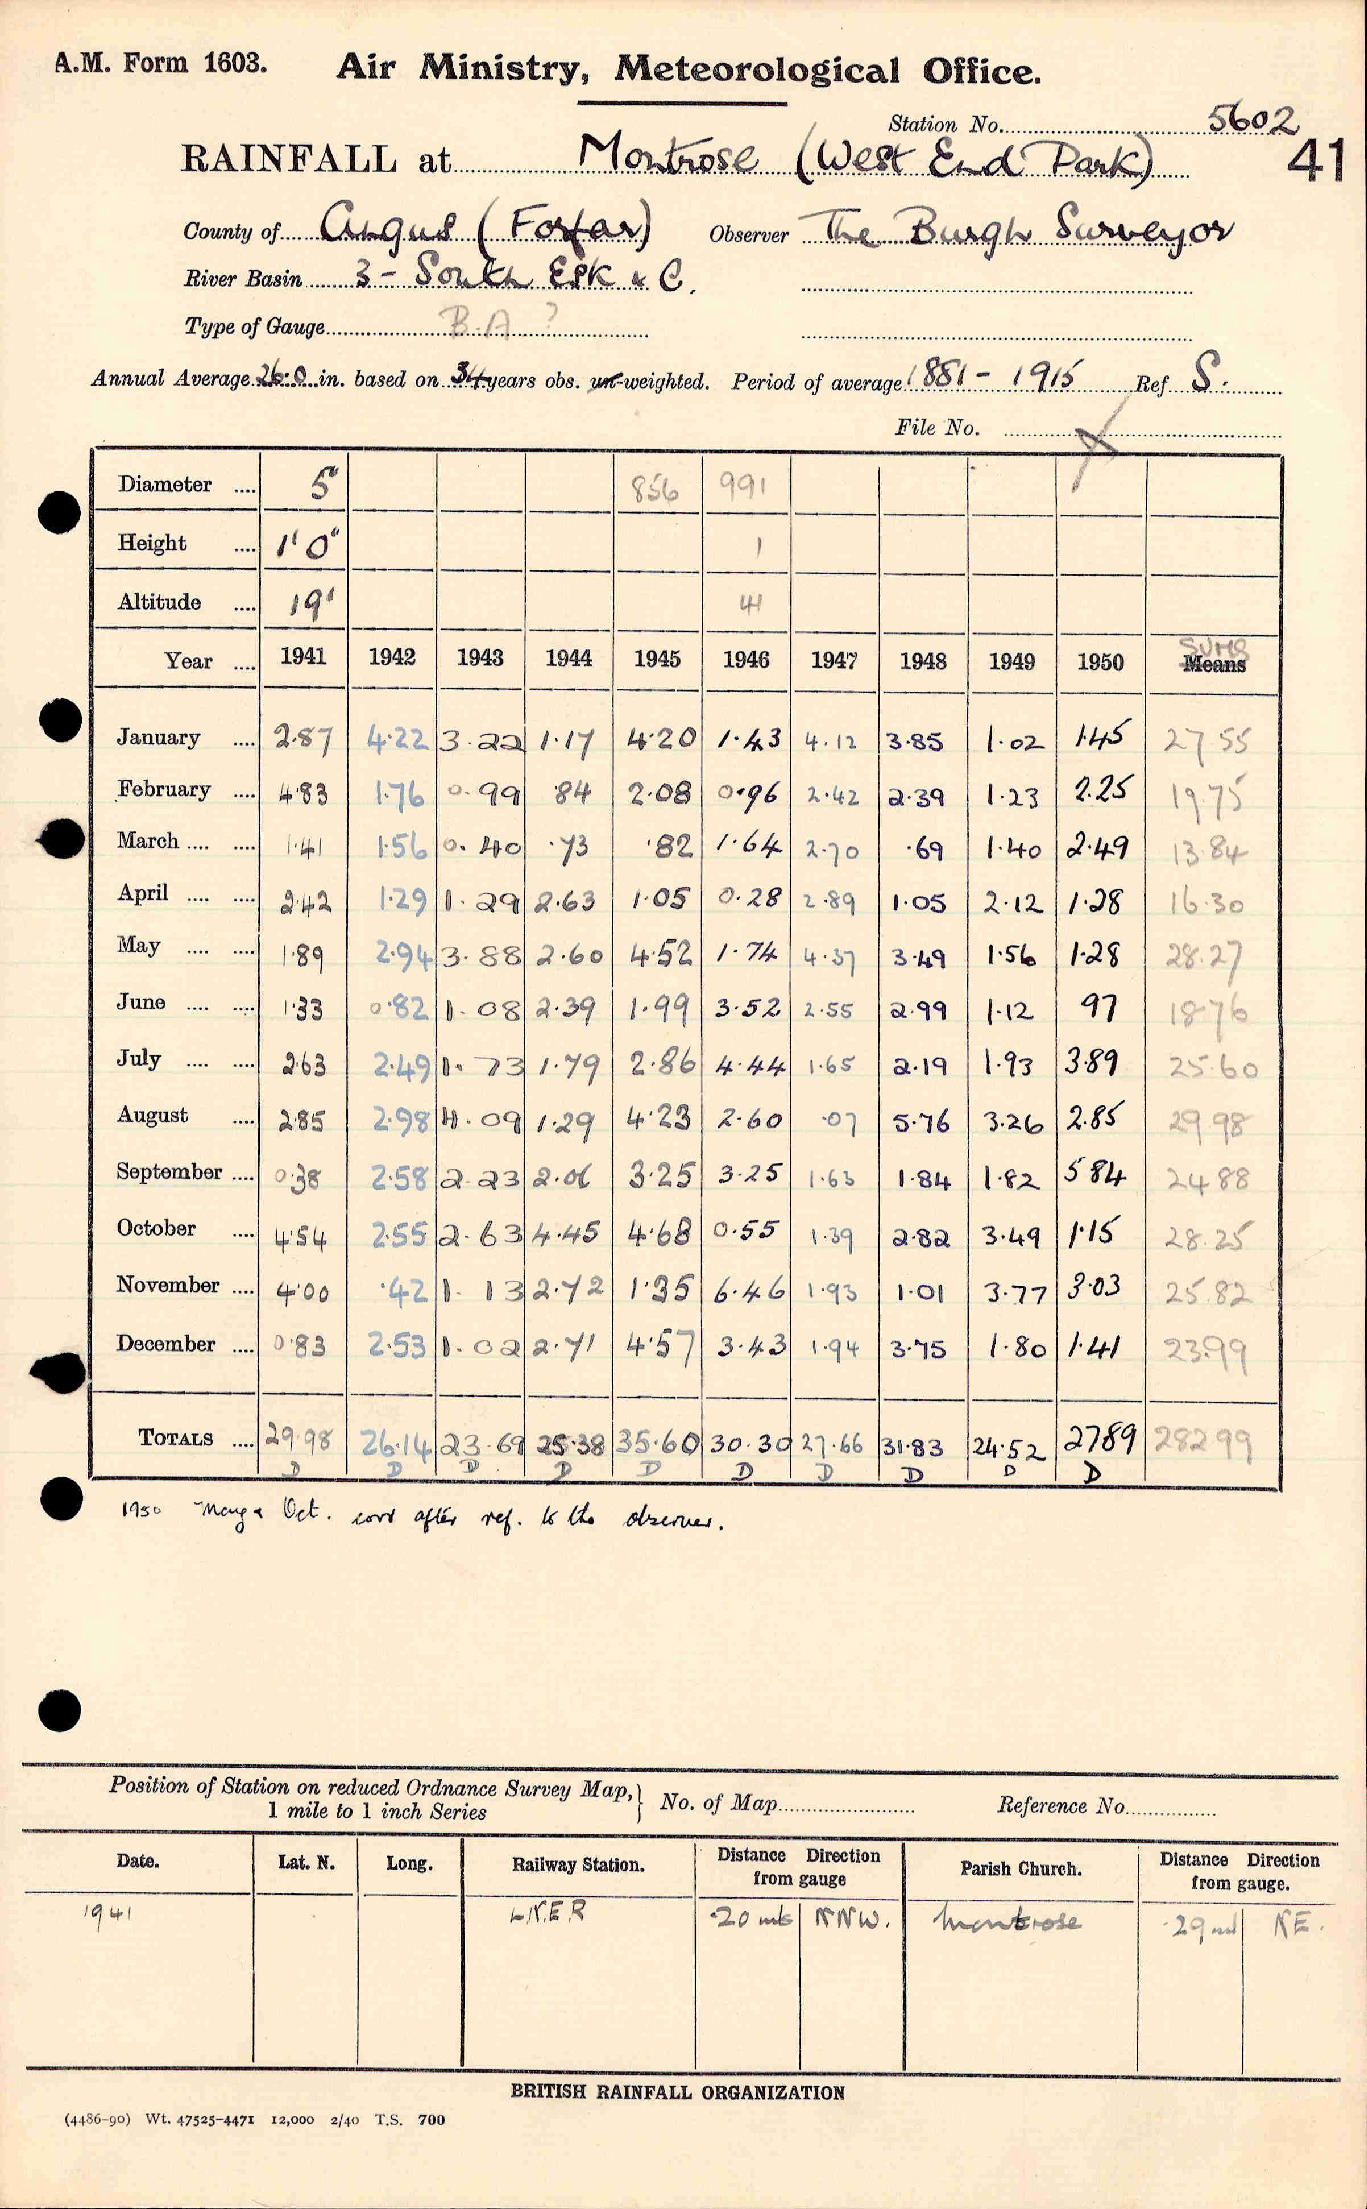 A.M. Form 1603. Air Ministry, Meteorological Office.
Station No. 5602
RAINFALL at Montrose (West End Park) 41
County of Angus (Forfar) Observer The Burgh Surveyor
River Basin 3 - South Esk & C.
Type of Gauge B.A ?
Annual Average 26.0 in. based on 34 years obs. un-weighted. Period of average 1881 - 1915 Ref S.
File No.
Diameter .... 5" 856 991
Height .... 1' 0" 1
Altitude .... 19' 41
Year .... 1941 1942 1943 1944 1945 1946 1947 1948 1949 1950 Sums Means
January .... 2.87 4.22 3.22 1.17 4.20 1.43 4.12 3.85 1.02 1.45 27.55
February .... 4.83 1.76 0.99 .84 2.08 0.96 2.42 2.39 1.23 2.25 19.75
March .... .... 1.41 1.56 0.40 .73 .82 1.64 2.70 .69 1.40 2.49 13.84
April .... .... 2.42 1.29 1.29 2.63 1.05 0.28 2.89 1.05 2.12 1.28 16.30
May .... .... 1.89 2.94 3.88 2.60 4.52 1.74 4.37 3.49 1.56 1.28 28.27
June .... .... 1.33 0.82 1.08 2.39 1.99 3.52 2.55 2.99 1.12 97 18.76
July .... .... 2.63 2.49 1.73 1.79 2.86 4.44 1.65 2.19 1.93 3.89 25.60
August .... 2.85 2.98 4.09 1.29 4.23 2.60 .07 5.76 3.26 2.85 29.98
September .... 0.38 2.58 2.23 2.06 3.25 3.25 1.63 1.84 1.82 5 84 24.88
October .... 4.54 2.55 2.63 4.45 4.68 0.55 1.39 2.82 3.49 1.15 28.25
November .... 4.00 .42 1.13 2.72 1.35 6.46 1.93 1.01 3.77 3.03 25.82
December .... 0.83 2.53 1.02 2.71 4.57 3.43 1.94 3.75 1.80 1.41 23.99
TOTALS .... 29.98 26.14 23.69 25.38 35.60 30.30 27.66 31.83 24.52 27 89 282 99
D D D D D D D D D D
1950 May & Oct. corr after ref. to the observer.
Position of Station on reduced Ordnance Survey Map, } No. of Map Reference No.
1 mile to 1 inch Series
Date. Lat. N. Long. Railway Station. Distance Direction from gauge Parish Church. Distance Direction from gauge.
1941 L.N.E.R .20 mls NNW. Montrose .29 ml NE.
BRITISH RAINFALL ORGANIZATION
(4486-90) Wt. 47525-4471 12,000 2/40 T.S. 700